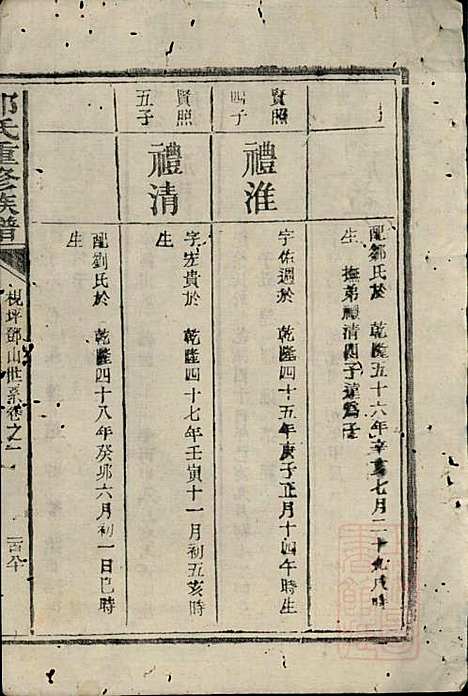 配鄒氏於　乾隆五十六年辛亥七月二十九戌時
生　撫弟禮清四子蓮為子
賢照
四子
禮淮
字佑週於　乾隆四十五年庚子正月十四午時生
賢照
五子
禮清
字宏貴於　乾隆四十七年壬寅十一月初五亥時
生
配劉氏於　乾隆四十八年癸邜六月初一日巳時
生
氏重修族譜
梘坪鄧山世系卷之一